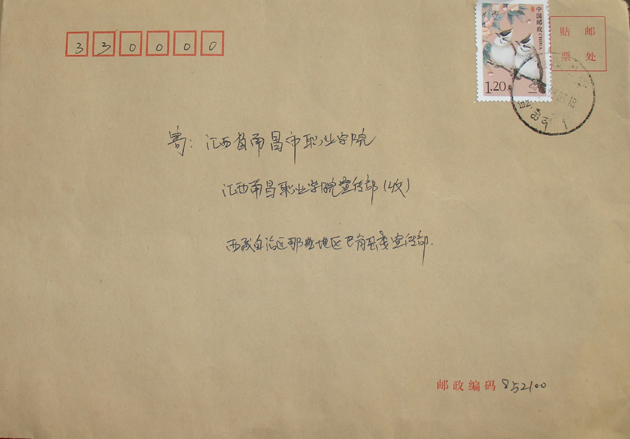 330000
中国邮政 CHINA
1.20
贴邮
票处
寄：江西省南昌市职业学院
江西南昌职业学院宣传部(收)
西藏自治区那曲地区巴青县委宣传部.
邮政编码 852100